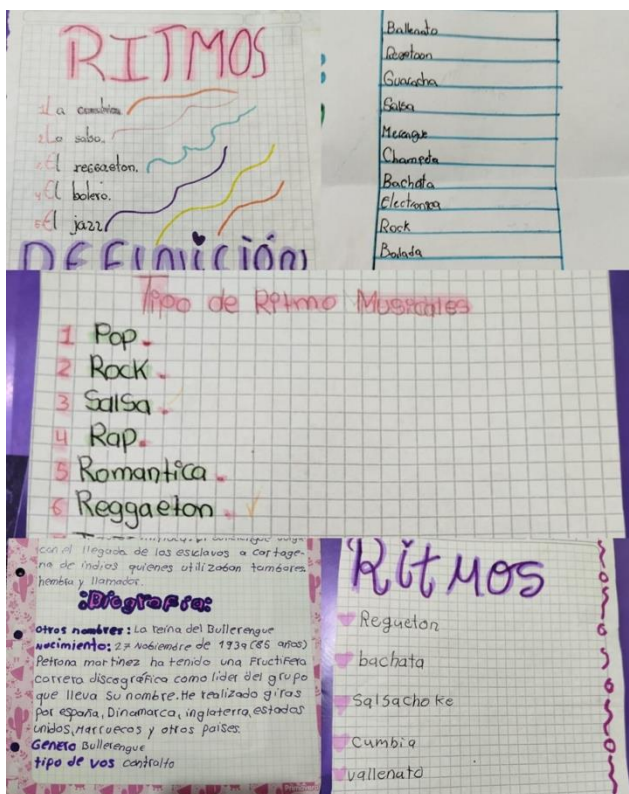 RITMOS
1 La cumbia
2 La salsa.
3 El reggaeton.
4 El bolero.
5 El jazz
DEFINICIÓN
Ballenato
Regetoon
Guaracha
Salsa
Merengue
Champeta
Bachata
Electronica
Rock
Balada
Tipo de Ritmo Musicales
1 Pop.
2 Rock.
3 Salsa.
4 Rap.
5 Romantica.
6 Reggaeton.
con el llegada de los esclavos a cartage-
na de indias quienes utilizaban tambores.
hembra y llamador.
:Biografía:
otros nombres: La reina del Bullerengue
Nacimiento: 27 Nobiembre de 1939 (85 años)
Petrona martinez ha tenido una Fructifera
carrera discografica como lider del grupo
que lleva su nombre. He realizado giras
por españa, Dinamarca, inglaterra, estados
unidos, Marruecos y otros paises.
Genero Bullerengue
tipo de vos contralto
Ritmos
Regueton
bachata
Salsachoke
Cumbia
vallenato